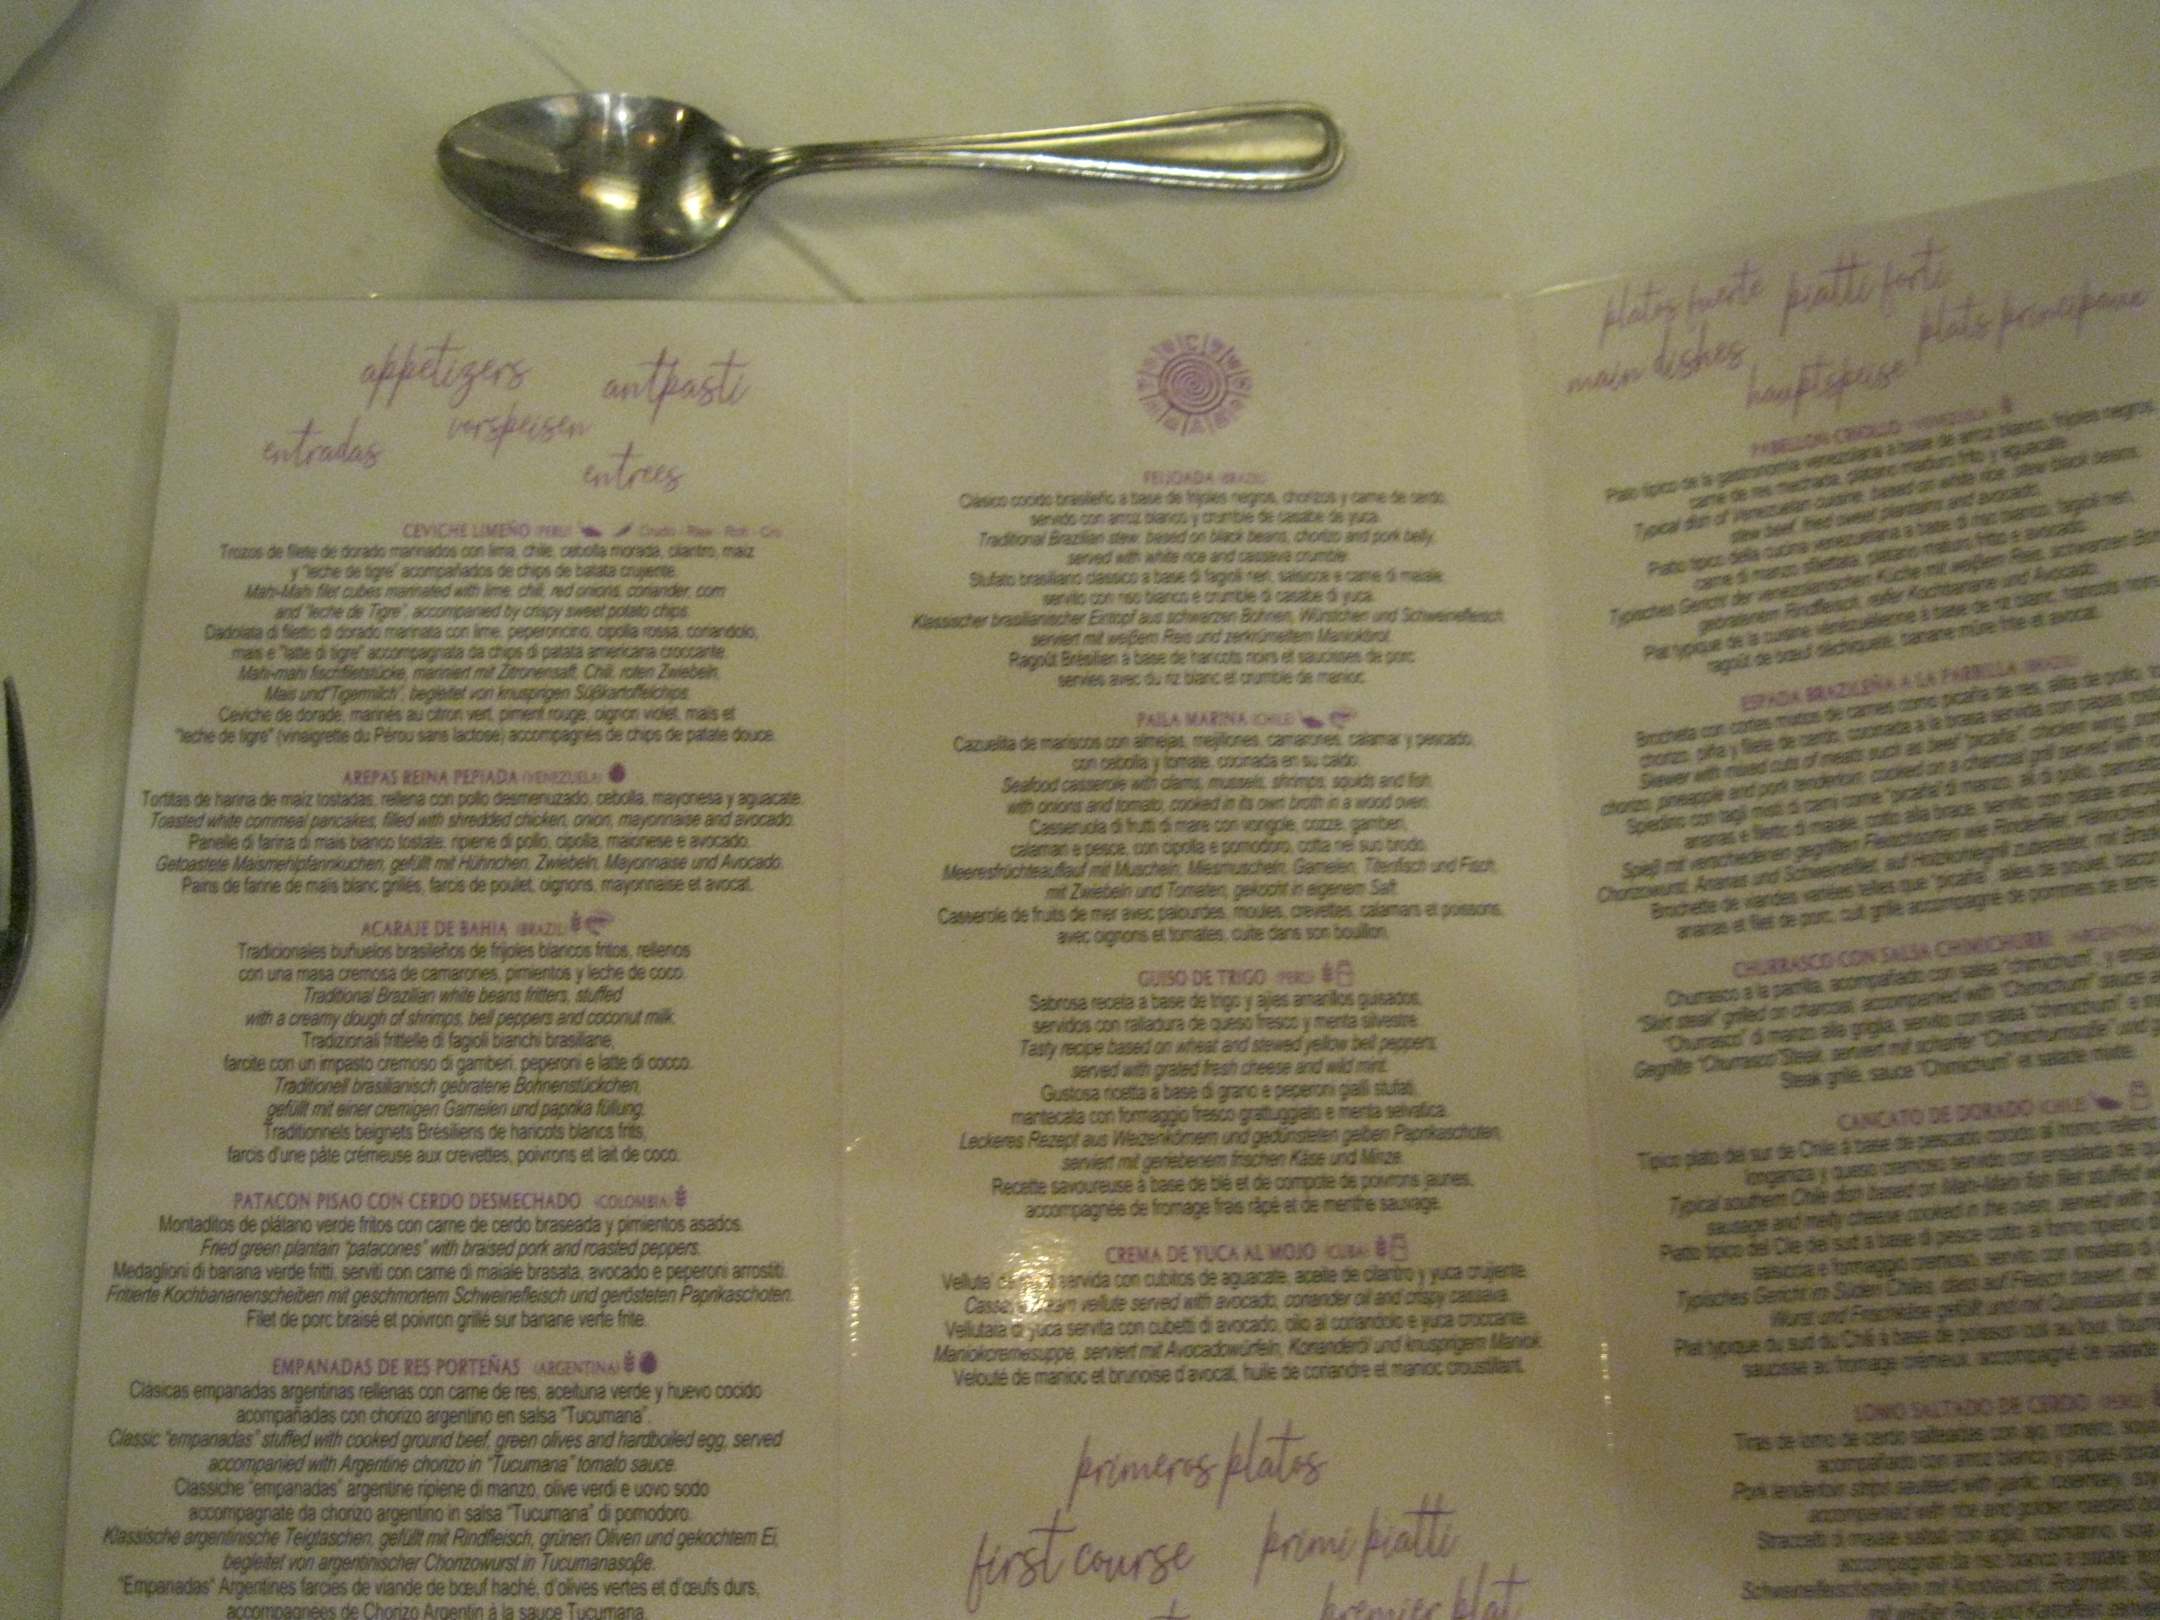 appetizers
antipasti
vorspeisen
entradas
entrees
CEVICHE LIMEÑO (PERU) Crudo - Raw - Roh - Cru
Trozos de filete de dorado marinados con lima, chile, cebolla morada, cilantro, maiz
y "leche de tigre" acompañados de chips de batata crujiente.
Mahi-Mahi filet cubes marinated with lime, chili, red onions, coriander, corn
and "leche de Tigre", accompanied by crispy sweet potato chips.
Dadolata di filetto di dorado marinata con lime, peperoncino, cipolla rossa, coriandolo,
mais e "latte di tigre" accompagnata da chips di patata americana croccante.
Mahi-mahi fischfiletstücke, mariniert mit Zitronensaft, Chili, roten Zwiebeln,
Mais und "Tigermilch", begleitet von knusprigen Süßkartoffelchips.
Ceviche de dorade, marinés au citron vert, piment rouge, oignon violet, maïs et
"leche de tigre" (vinaigrette du Pérou sans lactose) accompagnés de chips de patate douce.
AREPAS REINA PEPIADA (VENEZUELA)
Tortitas de harina de maiz tostadas, rellena con pollo desmenuzado, cebolla, mayonesa y aguacate.
Toasted white cornmeal pancakes, filled with shredded chicken, onion, mayonnaise and avocado.
Panelle di farina di mais bianco tostate, ripiene di pollo, cipolla, maionese e avocado.
Getoastete Maismehlpfannkuchen, gefüllt mit Hühnchen, Zwiebeln, Mayonnaise und Avocado.
Pains de farine de maïs blanc grillés, farcis de poulet, oignons, mayonnaise et avocat.
ACARAJE DE BAHIA (BRAZIL)
Tradicionales buñuelos brasileños de frijoles blancos fritos, rellenos
con una masa cremosa de camarones, pimientos y leche de coco.
Traditional Brazilian white beans fritters, stuffed
with a creamy dough of shrimps, bell peppers and coconut milk.
Tradizionali frittelle di fagioli bianchi brasiliane,
farcite con un impasto cremoso di gamberi, peperoni e latte di cocco.
Traditionell brasilianisch gebratene Bohnenstückchen,
gefüllt mit einer cremigen Garnelen und paprika füllung.
Traditionnels beignets Brésiliens de haricots blancs frits,
farcis d'une pâte crémeuse aux crevettes, poivrons et lait de coco.
PATACON PISAO CON CERDO DESMECHADO (COLOMBIA)
Montaditos de plátano verde fritos con carne de cerdo braseada y pimientos asados.
Fried green plantain "patacones" with braised pork and roasted peppers.
Medaglioni di banana verde fritti, serviti con carne di maiale brasata, avocado e peperoni arrostiti.
Frittierte Kochbananenscheiben mit geschmortem Schweinefleisch und gerösteten Paprikaschoten.
Filet de porc braisé et poivron grillé sur banane verte frite.
EMPANADAS DE RES PORTEÑAS (ARGENTINA)
Clásicas empanadas argentinas rellenas con carne de res, aceituna verde y huevo cocido
acompañadas con chorizo argentino en salsa "Tucumana".
Classic "empanadas" stuffed with cooked ground beef, green olives and hardboiled egg, served
accompanied with Argentine chorizo in "Tucumana" tomato sauce.
Classiche "empanadas" argentine ripiene di manzo, olive verdi e uovo sodo
accompagnate da chorizo argentino in salsa "Tucumana" di pomodoro.
Klassische argentinische Teigtaschen, gefüllt mit Rindfleisch, grünen Oliven und gekochtem Ei,
begleitet von argentinischer Chorizowurst in Tucumanasoße.
"Empanadas" Argentines farcies de viande de bœuf haché, d'olives vertes et d'œufs durs,
accompagnées de Chorizo Argentin à la sauce Tucumana.
FEIJOADA (BRAZIL)
Clásico cocido brasileño a base de frijoles negros, chorizos y carne de cerdo,
servido con arroz blanco y crumble de casabe de yuca.
Traditional Brazilian stew, based on black beans, chorizo and pork belly,
served with white rice and cassava crumble.
Stufato brasiliano classico a base di fagioli neri, salsicce e carne di maiale,
servito con riso bianco e crumble di casabe di yuca.
Klassischer brasilianischer Eintopf aus schwarzen Bohnen, Würstchen und Schweinefleisch,
serviert mit weißem Reis und zerkrümeltem Maniokbrot.
Ragoût Brésilien à base de haricots noirs et saucisses de porc
servies avec du riz blanc et crumble de manioc.
PAILA MARINA (CHILE)
Cazuelita de mariscos con almejas, mejillones, camarones, calamar y pescado,
con cebolla y tomate, cocinada en su caldo.
Seafood casserole with clams, mussels, shrimps, squids and fish,
with onions and tomato, cooked in its own broth in a wood oven.
Casseruola di frutti di mare con vongole, cozze, gamberi,
calamari e pesce, con cipolla e pomodoro, cotta nel suo brodo.
Meeresfrüchteauflauf mit Muscheln, Miesmuscheln, Garnelen, Tintenfisch und Fisch,
mit Zwiebeln und Tomaten, gekocht in eigenem Saft.
Casserole de fruits de mer avec palourdes, moules, crevettes, calamars et poissons,
avec oignons et tomates, cuite dans son bouillon.
GUISO DE TRIGO (PERU)
Sabrosa receta a base de trigo y ajies amarillos guisados,
servidos con ralladura de queso fresco y menta silvestre.
Tasty recipe based on wheat and stewed yellow bell peppers,
served with grated fresh cheese and wild mint.
Gustosa ricetta a base di grano e peperoni gialli stufati,
mantecata con formaggio fresco grattuggiato e menta selvatica.
Leckeres Rezept aus Weizenkörnern und gedünsteten gelben Paprikaschoten,
serviert mit geriebenem frischen Käse und Minze.
Recette savoureuse à base de blé et de compote de poivrons jaunes,
accompagnée de fromage frais râpé et de menthe sauvage.
CREMA DE YUCA AL MOJO (CUBA)
servida con cubitos de aguacate, aceite de cilantro y yuca crujiente.
velluté served with avocado, coriander oil and crispy cassava.
Vellutata di yuca servita con cubetti di avocado, olio al coriandolo e yuca croccante.
Maniokcremesuppe, serviert mit Avocadowürfeln, Korianderöl und knusprigem Maniok.
Velouté de manioc et brunoise d'avocat, huile de coriandre et manioc croustillant.
primeros platos
first course
primi piatti
premier plat
platos fuerte
piatti forti
main dishes
plats principaux
hauptspeise
PABELLON CRIOLLO (VENEZUELA)
Plato tipico de la gastronomia venezolana a base de arroz blanco, frijoles negros,
carne de res mechada, plátano maduro frito y aguacate.
Typical dish of Venezuelan cuisine, based on white rice, stew black beans,
stew beef, fried sweet plantains and avocado.
Piatto tipico della cucina venezuelana a base di riso bianco, fagioli neri,
carne di manzo sfilettata, platano maturo fritto e avocado.
Typisches Gericht der venezolanischen Küche mit weißem Reis, schwarzen
gebratenem Rindfleisch, reifer Kochbanane und Avocado.
Plat typique de la cuisine vénézuélienne à base de riz blanc, haricots noirs,
ragoût de bœuf déchiqueté, banane mûre frite et avocat.
ESPADA BRAZILEÑA A LA PARRILLA (BRAZIL)
Brocheta con cortes mixtos de carnes como picaña de res, alita de pollo,
chorizo, piña y filete de cerdo, cocinada a la brasa servida con papas
Skewer with mixed cuts of meats such as beef "picaña", chicken wing,
chorizo, pineapple and pork tenderloin, cooked on a charcoal grill served with
Spiedino con tagli misti di carni come "picaña" di manzo, ali di pollo,
ananas e filetto di maiale, cotto alla brace, servito con patate
Spieß mit verschiedenen gegrillten Fleischsorten wie Rinderfilet,
Chorizowurst, Ananas und Schweinefilet, auf Holzkohlegrill zubereitet, mit
Brochette de viandes variées telles que "picaña", ailes de poulet,
ananas et filet de porc, cuit grillé accompagné de pommes de terre
CHURRASCO CON SALSA CHIMICHURRI (ARGENTINA)
Churrasco a la parrilla, acompañado con salsa "chimichurri", y
"Skirt steak" grilled on charcoal, accompanied with "Chimichurri" sauce
"Churrasco" di manzo alla griglia, servito con salsa "chimichurri" e
Gegrillte "Churrasco" Steak, serviert mit scharfer "Chimichurrisoße" und
Steak grillé, sauce "Chimichurri" et salade mixte.
CANCATO DE DORADO (CHILE)
Tipico plato del sur de Chile a base de pescado cocido al horno relleno
longaniza y queso cremoso servido con ensalada de
Typical southern Chile dish based on Mahi-Mahi fish filet stuffed
sausage and melty cheese cooked in the oven, served with
Piatto tipico del Cile del sud a base di pesce cotto al forno ripieno
salsiccia e formaggio cremoso, servito con insalata di
Typisches Gericht im Süden Chiles, dass auf Fleisch basiert, mit
Wurst und Frischkäse gefüllt und mit Quinoasalat
Plat typique du sud du Chili à base de poisson cuit au four,
saucisse au fromage crémeux, accompagné de salade
LOMO SALTADO DE CERDO (PERU)
Tiras de lomo de cerdo salteadas con ajo, romero,
acompañado con arroz blanco y papas
Pork tenderloin strips sauteed with garlic, rosemary,
accompanied with rice and golden roasted
Straccetti di maiale saltati con aglio, rosmarino,
accompagnati da riso bianco e patate
Schweinefleischstreifen mit Knoblauch, Rosmarin,